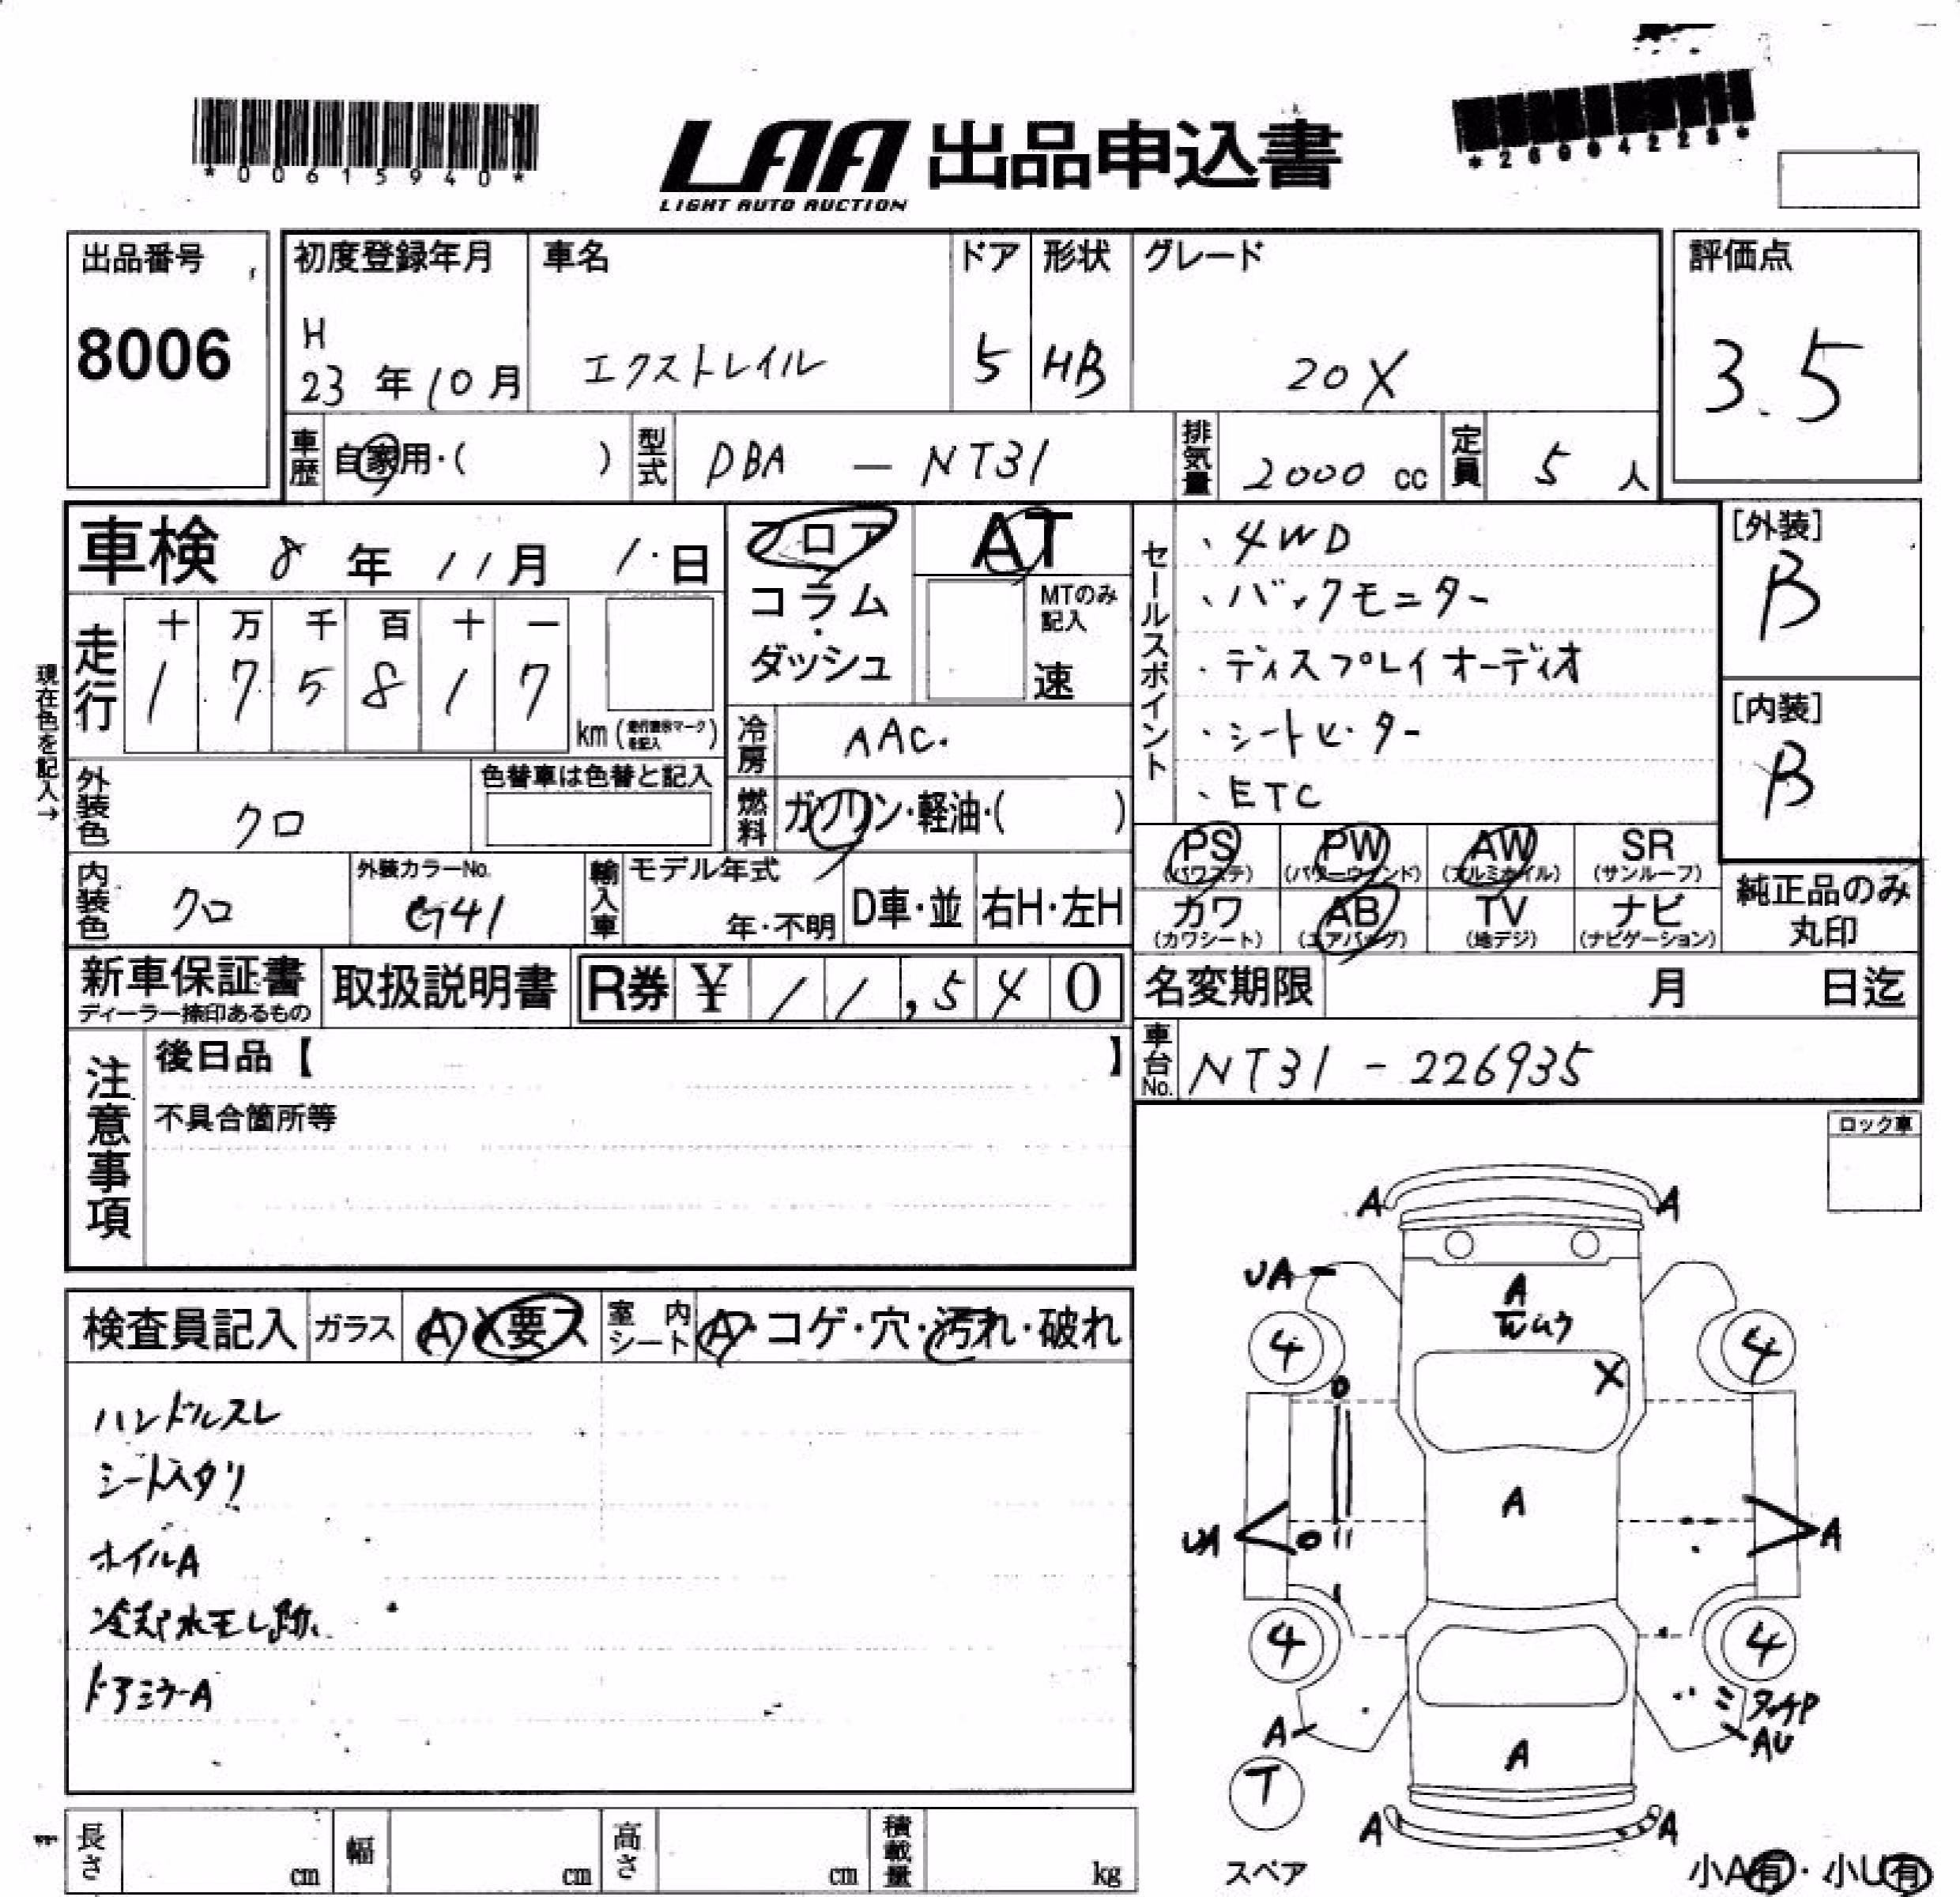 *00615940*
LAA 出品申込書
LIGHT AUTO AUCTION
*26004228*
出品番号
8006
初度登録年月
H
23 年 10 月
車名
エクストレイル
ドア
5
形状
HB
グレード
20X
評価点
3.5
車歴 自家用・( )
型式 DBA — NT31
排気量 2000 cc
定員 5 人
車検 8 年 11 月 1 日
フロア
コラム
・
ダッシュ
AT
MTのみ
記入
速
セールスポイント
、4WD
、バックモニター
・ディスプレイオーディオ
・シートヒーター
、ETC
[外装]
B
[内装]
B
現在色を記入→
走行
十 万 千 百 十 一
1 7 5 8 1 7
km ( )
冷房 AAC.
燃料 ガソリン・軽油・( )
外装色 クロ
色替車は色替と記入
内装色 クロ
外装カラーNo.
G41
輸入車
モデル年式
年・不明
D車・並
右H・左H
PS
(パワステ)
PW
(パワーウインド)
AW
(アルミホイル)
SR
(サンルーフ)
カワ
(カワシート)
AB
(エアバッグ)
TV
(地デジ)
ナビ
(ナビゲーション)
純正品のみ
丸印
新車保証書
ディーラー捺印あるもの
取扱説明書
R券 ¥ 11,540
名変期限 月 日迄
車台No. NT31 - 226935
注意事項
後日品【 】
不具合箇所等
ロック車
検査員記入
ガラス A X要ス
室内シート A・コゲ・穴・汚れ・破れ
ハンドルスレ
シートヘタリ
ホイルA
冷却水モレ跡
ドアミラーA
A A
UA
A
4 4
X
A
UA A
4 4
A
A
AU
T
A A
スペア
小A有・小U有
長さ cm
幅 cm
高さ cm
積載量 kg